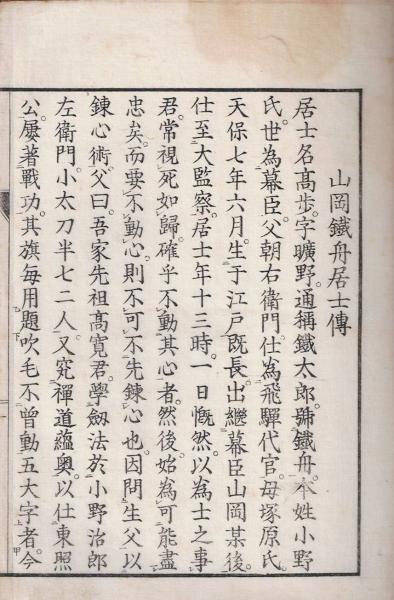 山岡鐵舟居士傳
居士名高歩。字曠野。通稱鐵太郎。號鐵舟。本姓小野
氏。世為幕臣。父朝右衛門仕為飛驒代官。母塚原氏。
天保七年六月。生于江戸。既長。出繼幕臣山岡某後。
仕至大監察。居士年十三時。一日慨然。以為士之事
君。常視死如歸。確乎不動其心者。然後始為可能盡
忠矣。而要不動心。則不可不先鍊心也。因問生父以
鍊心術。父曰。吾家先祖高寛君。學劔法於小野治郎
左衛門。小太刀半七二人。又究禪道蘊奧。以仕東照
公。屢著戰功。其旗每用題吹毛不曾動五大字者。今